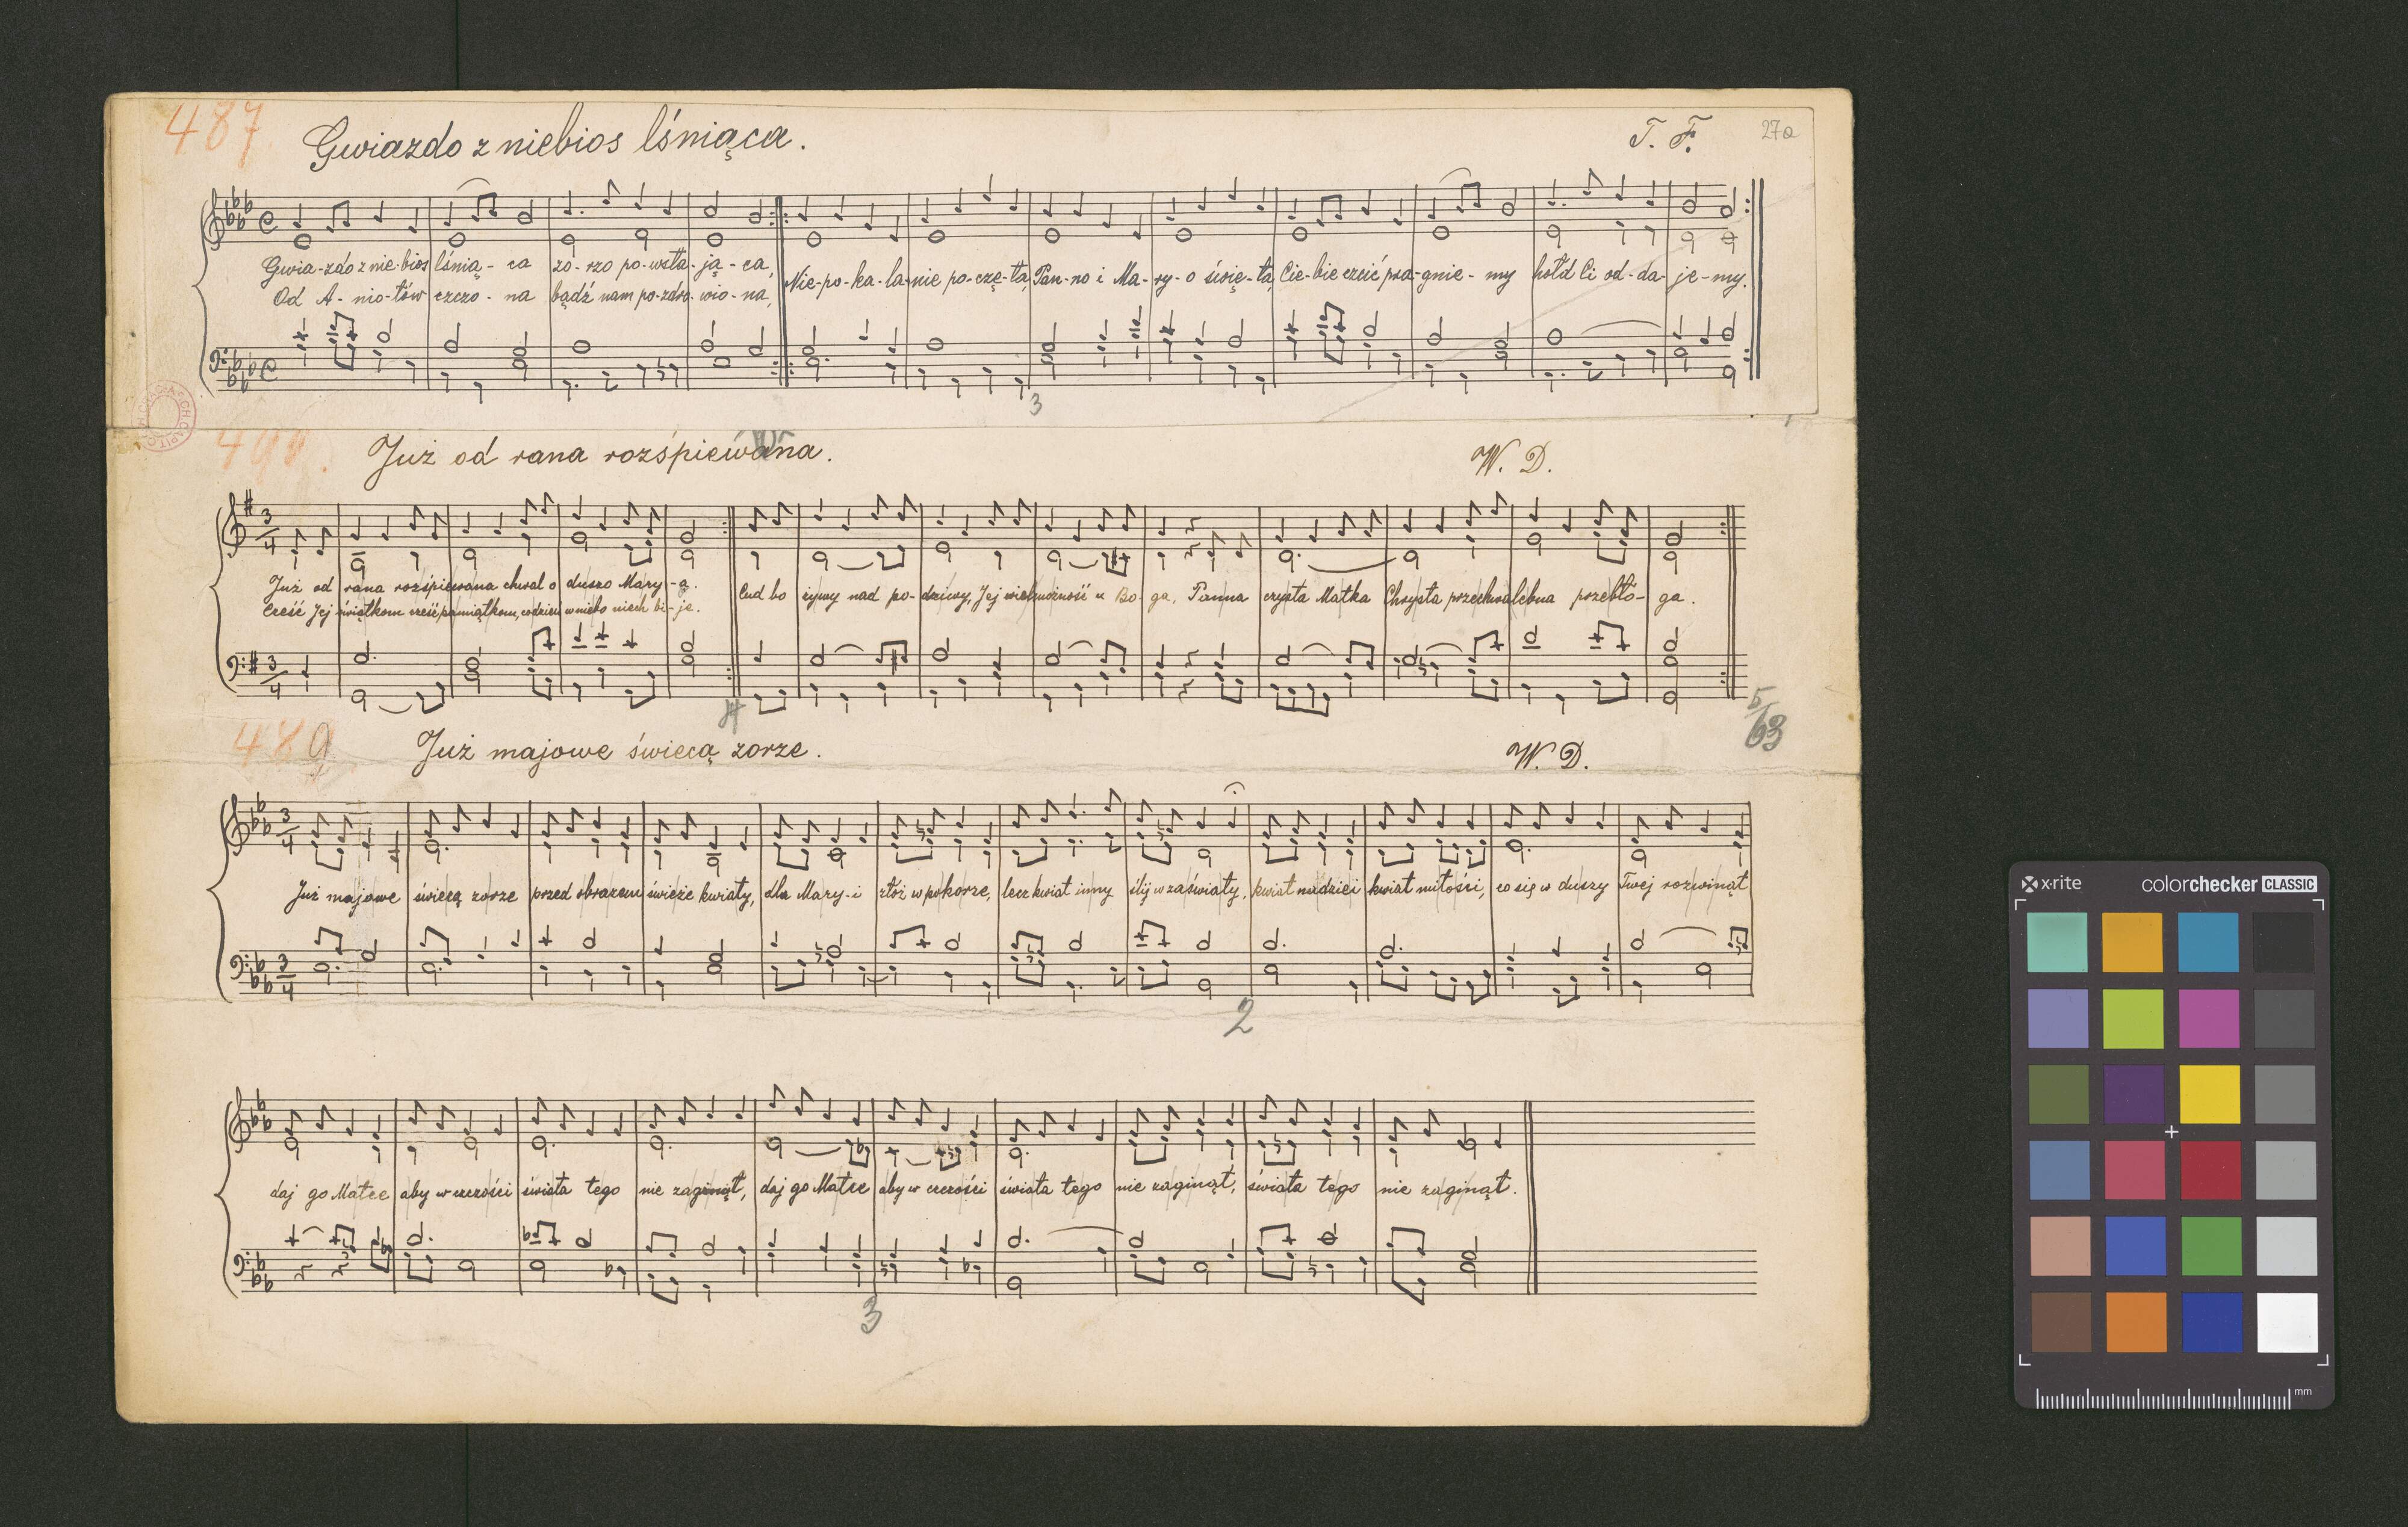 487.
Gwiazdo z niebios lśniąca.
T. F.
27a
Gwia-zdo z nie-bios lśnią-ca zo-rzo po-wsta-ją-ca, Nie-po-ka-la-nie po-czę-ta, Pan-no i Ma-ry-o świę-ta, Cie-bie czcić pra-gnie-my hołd Ci od-da-je-my.
Od A-nio-łów czczo-na bądź nam po-zdro-wio-na,
3
490.
Już od rana rozśpiewana.
W. D.
Już od rana rozśpiewana chwal o duszo Mary-ę. Cud bo żywy nad po-dziwy, Jej wielmożność u Bo-ga, Panna czysta Matka Chrysta przechwalebna przebło-ga.
Cześć Jej świątkom cześć pamiątkom, co dzień w niebo niech bi-je.
4
5/63
489
Już majowe świecą zorze.
W. D.
Już majowe świecą zorze przed obrazem świeże kwiaty, dla Mary-i złóż w pokorze, lecz kwiat inny ślij w zaświaty, kwiat nadziei kwiat miłości, co się w duszy Twej rozwinął
2
daj go Matce aby w czczości świata tego nie zaginął, daj go Matce aby w czczości świata tego nie zaginął, świata tego nie zaginął.
3
x-rite
colorchecker CLASSIC
mm